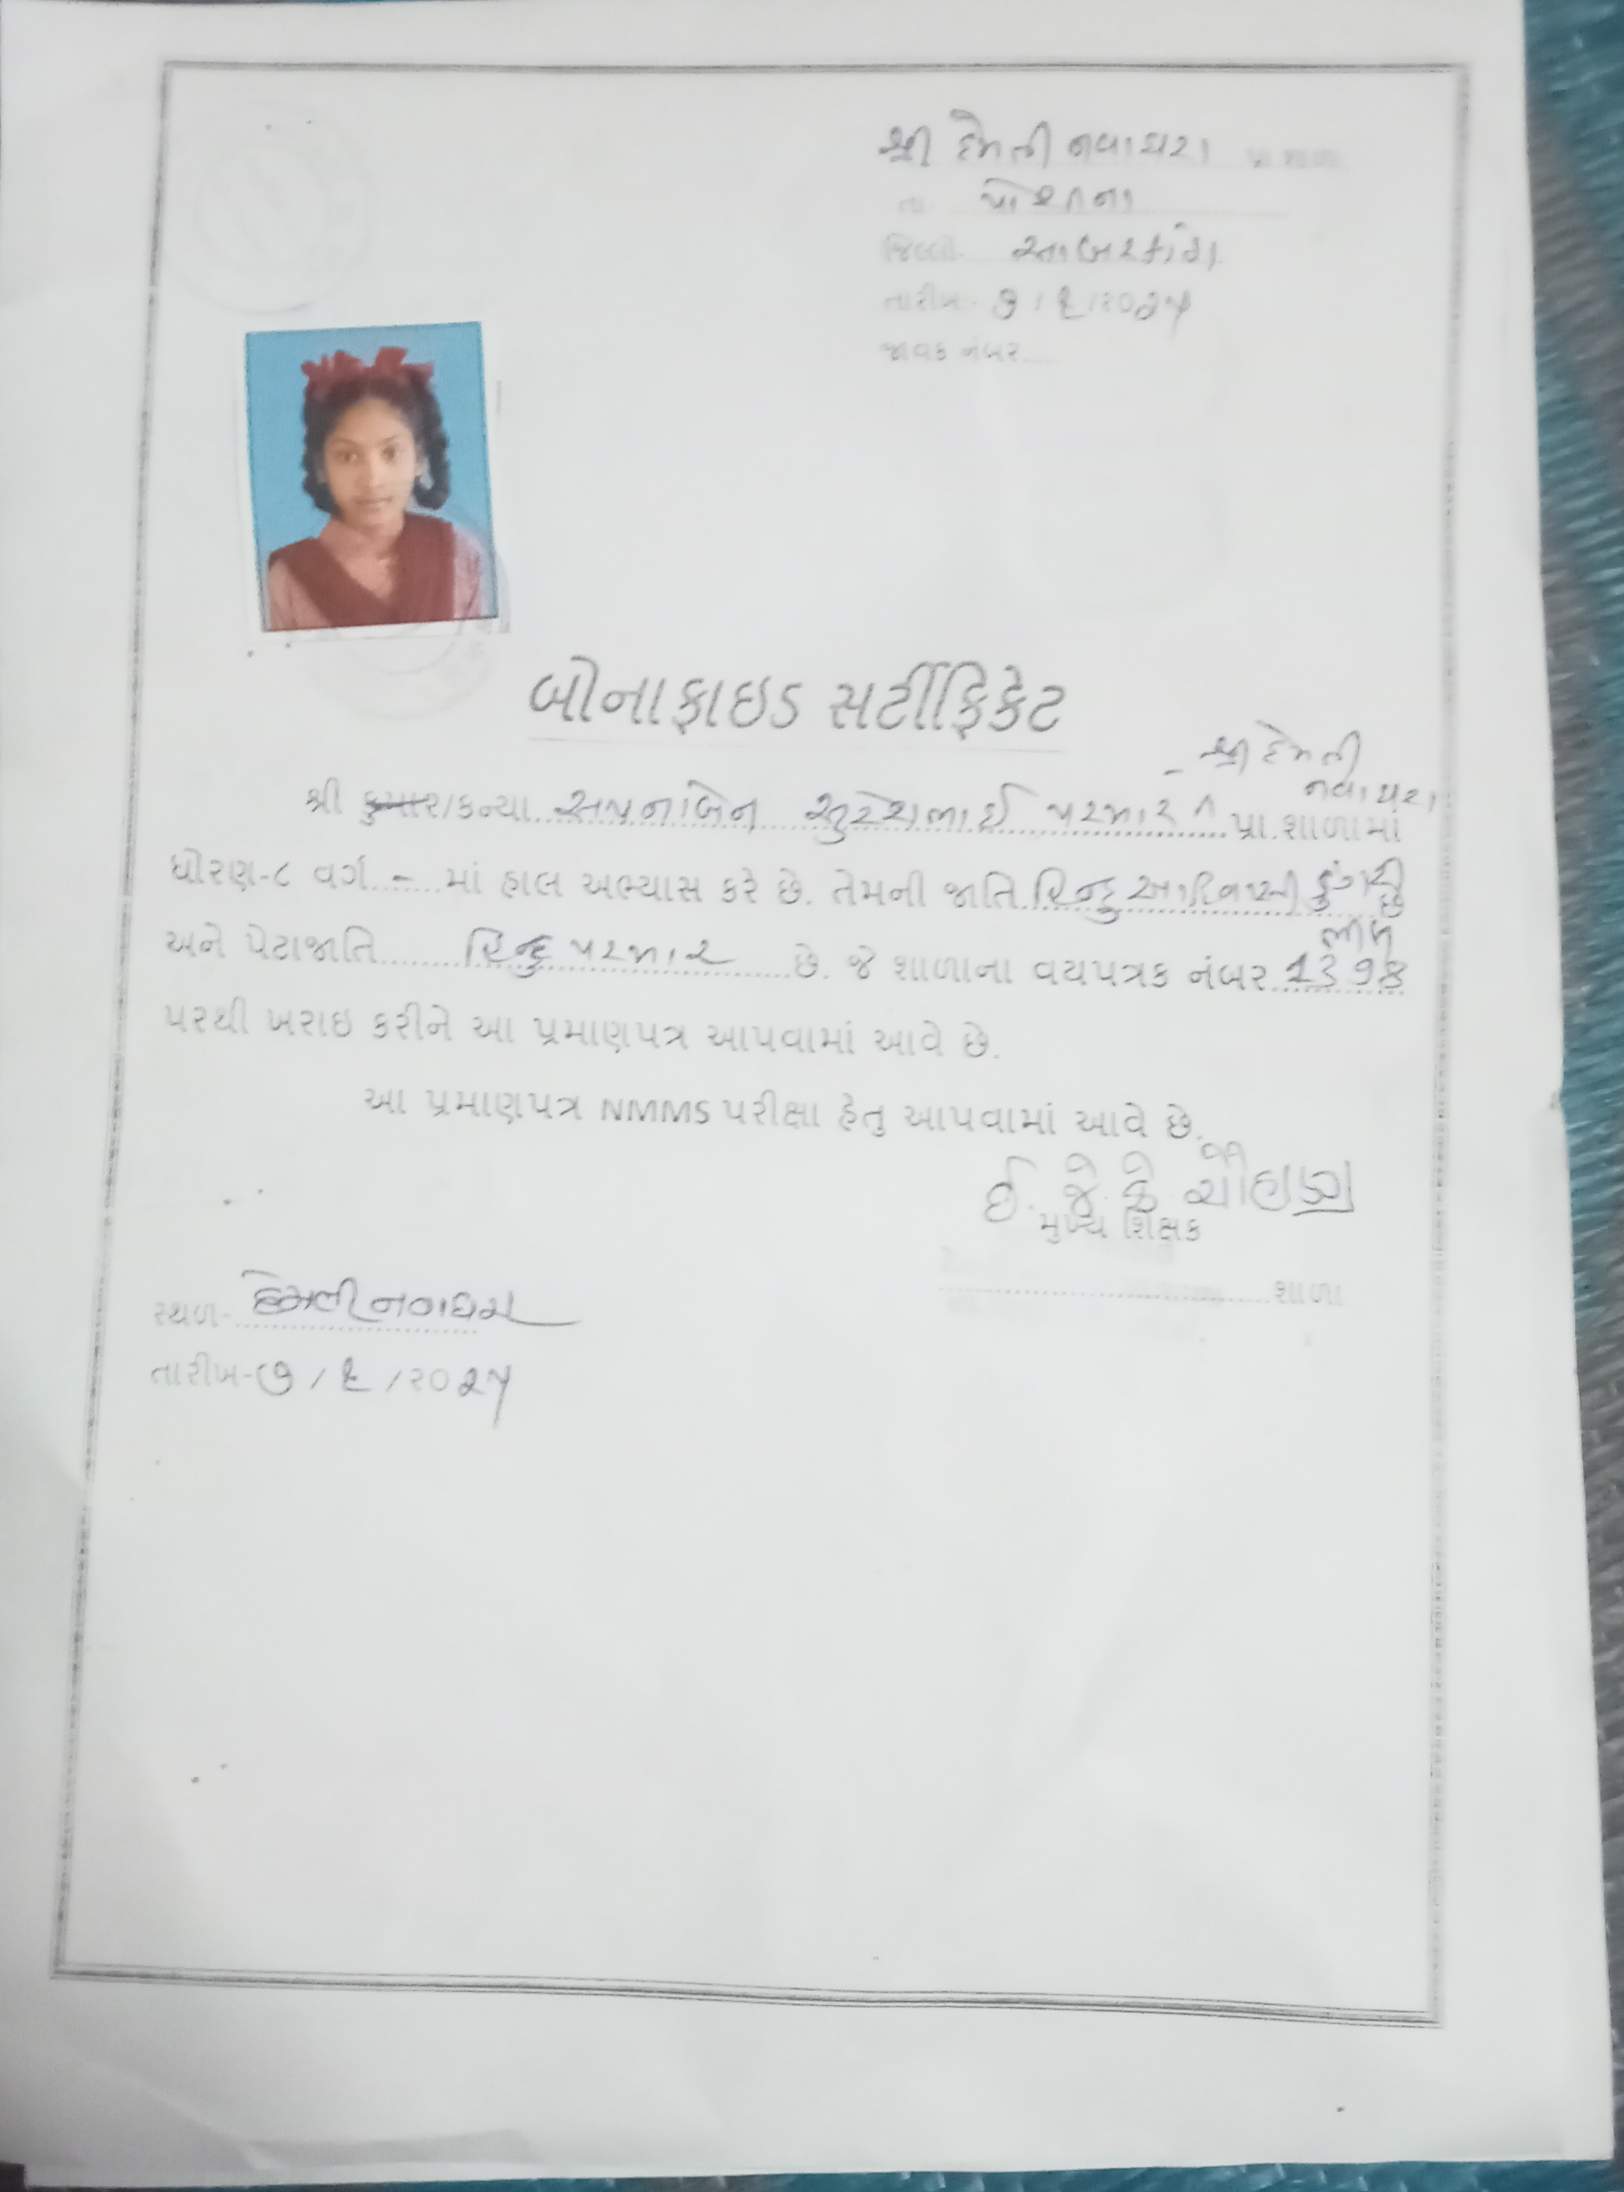 શ્રી દેમતી નવાઘરા પ્રા. શાળા
તા. પોશીના
જિલ્લો- સાબરકાંઠા
તારીખ- ૭/૬/૨૦૨૫
જાવક નંબર
બોનાફાઇડ સર્ટીફિકેટ
- શ્રી દેમતી
નવાઘરા
શ્રી કુમાર/કન્યા સપનાબેન સુરેશભાઈ પરમાર ^ પ્રા.શાળામાં
ધોરણ-૮ વર્ગ - માં હાલ અભ્યાસ કરે છે. તેમની જાતિ હિન્દુ આદિવાસી ડુંગરી છે
અને પેટાજાતિ હિન્દુ પરમાર છે. જે શાળાના વયપત્રક નંબર
પરથી ખરાઇ કરીને આ પ્રમાણપત્ર આપવામાં આવે છે.
આ પ્રમાણપત્ર NMMS પરીક્ષા હેતુ આપવામાં આવે છે.
ઈ. જે. કે. ચૌહાણ
મુખ્ય શિક્ષક
શાળા
સ્થળ- દેમતી નવાઘરા
તારીખ- ૭/૬/૨૦૨૫